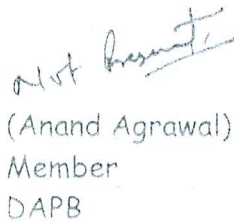 Not Present.
(Anand Agrawal)
Member
DAPB